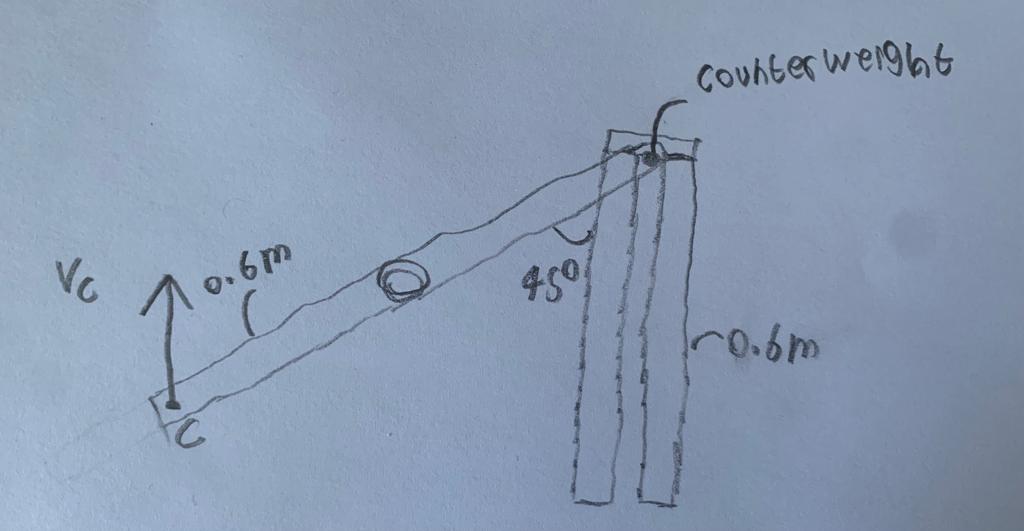 counterweight
0.6m
Vc
45°
0.6m
C